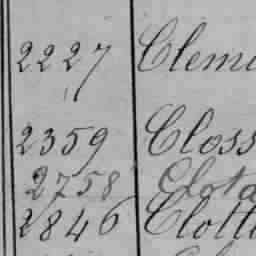 2227 Clem
2359 Closs
2758 Clota
2846 Clott